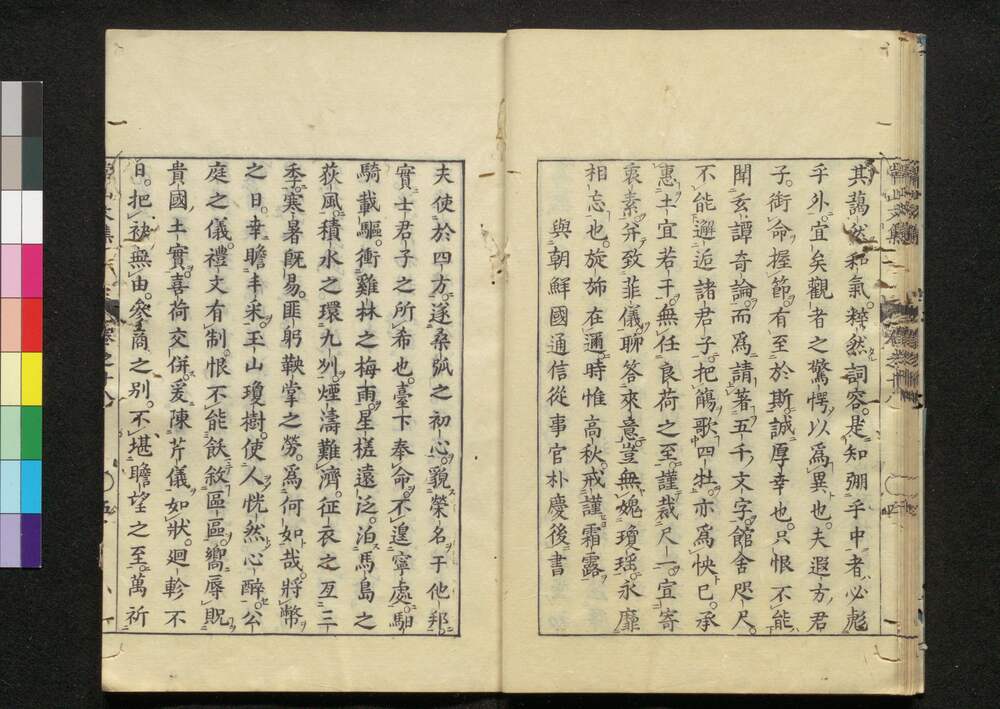 其藹然和氣粹然詞容是知弸乎中者必彪
乎外宜矣觀者之驚愕以爲異也夫遐方君
子銜命握節有至於斯誠厚幸也只恨不能
聞玄譚奇論而爲請著五千文字館舍咫尺
不能邂逅諸君子把觴歌四牡亦爲怏已承
惠土宜若干無任良荷之至謹裁尺一宜寄
衷素幷致菲儀聊答來意豈無媿瓊瑤永靡
相忘也旋斾在邇時惟高秋戒謹霜露
與朝鮮國通信從事官朴慶後書
夫使於四方遂桑弧之初心貌榮名于他邦
實士君子之所希也臺下奉命不遑寧處馹
騎載驅衝雞林之梅雨星槎遠泛泊馬島之
荻風積水之環九州煙濤難濟征衣之亙三
季寒暑旣易匪躬鞅掌之勞爲何如哉將幣
之日幸瞻丰采玉山瓊樹使人恍然心醉公
庭之儀禮文有制恨不能飫敘區區嚮辱貺
貴國土實喜荷交併爰陳芹儀如狀廻軫不
日把袂無由參商之別不堪瞻望之至萬祈